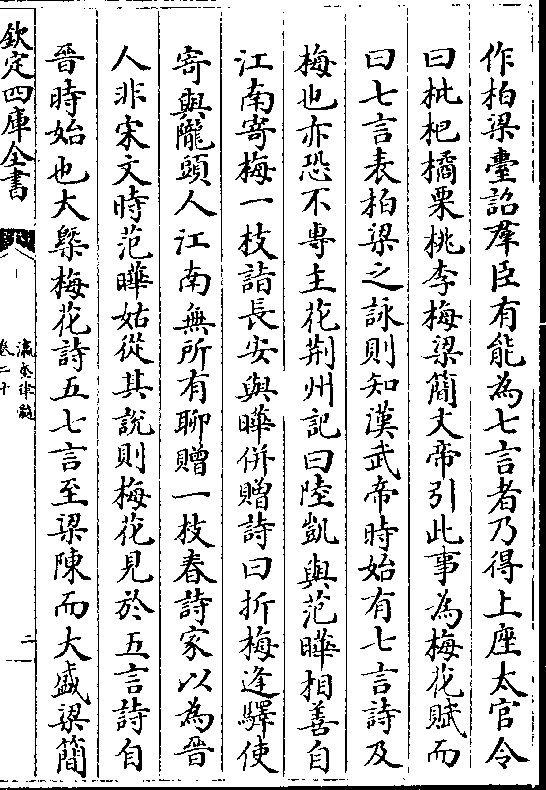 作柏梁臺詔羣臣有能為七言者乃得上座太官令
曰枇杷橘栗桃李梅梁簡文帝引此事為梅花賦而
曰七言表柏梁之詠則知漢武帝時始有七言詩及
梅也亦恐不專主花荆州記曰陸凱與范曄相善自
江南寄梅一枝詣長安與曄併贈詩曰折梅逢驛使
寄與隴頭人江南無所有聊贈一枝春詩家以為晉
人非宋文時范曄姑從其說則梅花見於五言詩自
晉時始也大槩梅花詩五七言至梁陳而大盛梁簡
欽定四庫全書
瀛奎律髓
卷二十
二